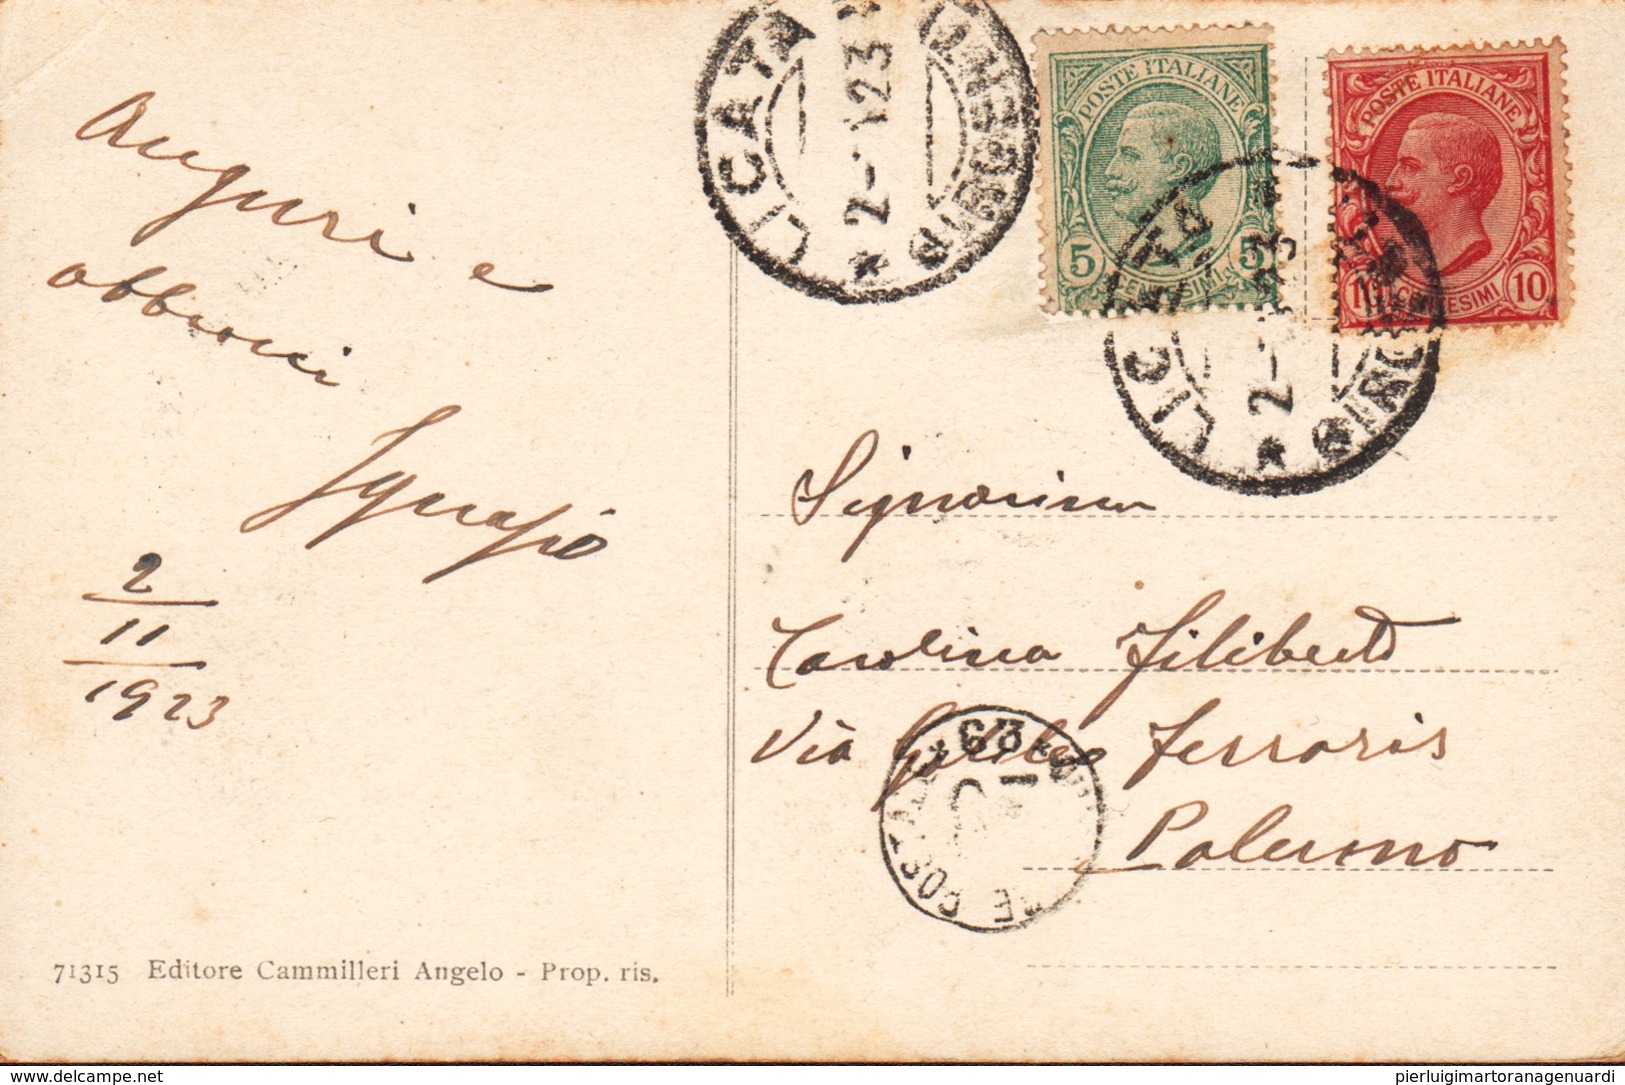 Auguri e
abbracci
Ignazio
2
11
1923
71315 Editore Cammilleri Angelo - Prop. ris.
LICATA
2-11 23
POSTE ITALIANE
5 5
CENTESIMI
POSTE ITALIANE
10 CENTESIMI 10
LICATA
Signorina
Carolina Filiberto
Via Galileo Ferraris
Palermo
delcampe.net
pierluigimartoranagenuardi